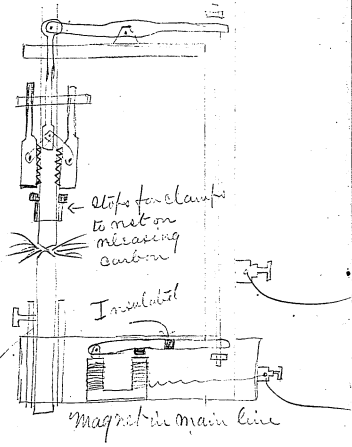 Stops for clamps
to rest on
releasing
carbon
Insulated
Magnet in main line